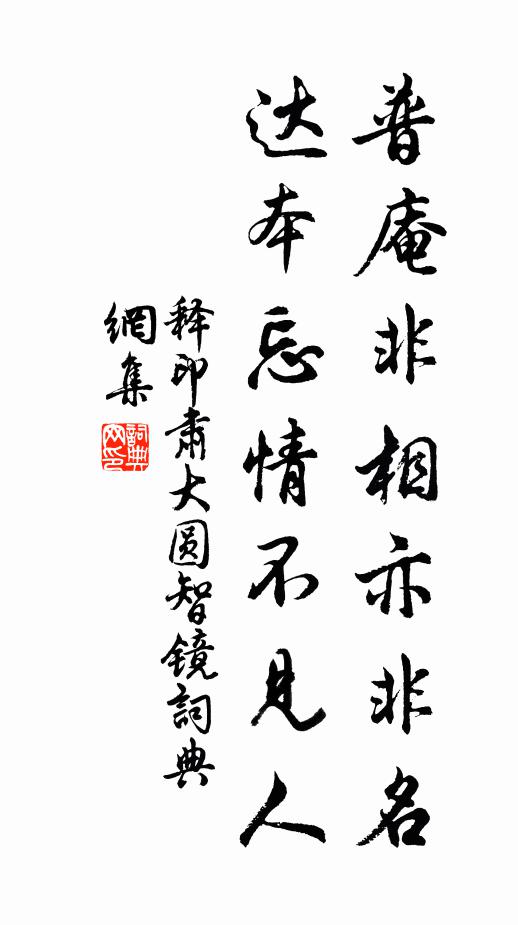 普庵非相亦非名
达本忘情不见人
释印肃大圆智镜詞典
網集
詞典
网印